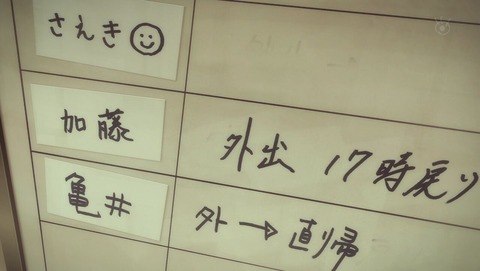 さえき☺
加藤 外出 17時戻り
亀井 外→直帰